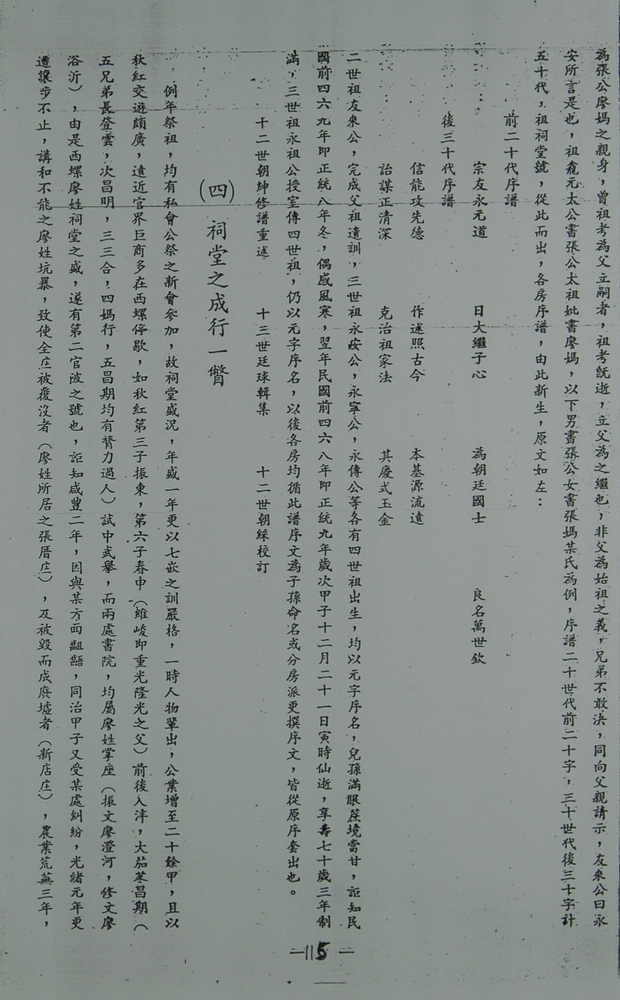 為張公廖媽之親身，曾祖考為父立嗣者，祖考旣逝，立父為之繼也，非父為始祖之義，兄弟不敢決，同向父親請示，友來公曰永
安所言是也，祖龕元太公書張公太祖妣書廖媽，以下男書張公女書張媽某氏為例，序譜二十世代前二十字，三十世代後三十字計
五十代，祖祠堂號，從此而出，各房序譜，由此新生，原文如左：
前二十代序譜
宗友永元道　日大繼子心　為朝廷國士　良名萬世欽
後三十代序譜
信能攻先德　作述照古今　本基源流遠
詒謀正清深　克治祖家法　其慶式玉金
二世祖友來公，完成父祖遺訓，三世祖永安公，永寧公，永傳公等各有四世祖出生，均以元字序名，兒孫滿眼蔗境當甘，詎知民
國前四六九年即正統八年冬，偶感風寒，翌年民國前四六八年即正統九年歲次甲子十二月二十一日寅時仙逝，享壽七十歲三年制
滿，三世祖永祖公授室傳四世祖，仍以元字序名，以後各房均循此譜序文為子孫命名或分房派更撰序文，皆從原序套出也。
十二世朝紳修譜重述　十三世廷球輯集　十二世朝綵校訂
（四）祠堂之成行一瞥
例年祭祖，均有私會公祭之新會參加，故祠堂盛況，年盛一年更以七嵌之訓嚴格，一時人物輩出，公業增至二十餘甲，且以
秋紅交遊頗廣，遠近官界巨商多在西螺停歇，如秋紅第三子振東，第六子春中（維峻即重光隆光之父）前後入泮，大茄苳昌期（
五兄弟長登雲，次昌明，三三合，四媽行，五昌期均有膂力過人）試中武舉，而兩處書院，均屬廖姓掌座（振文廖澄河，修文廖
浴沂），由是西螺廖姓祠堂之盛，遂有第二官陂之號也，詎知咸豐二年，因與某方面齟齬，同治甲子又受某處糾紛，光緒元年更
遭讓步不止，講和不能之廖姓坑暴，致使全庄被覆沒者（廖姓所居之張厝庄），及被毀而成廢墟者（新店庄），農業荒蕪三年，
—115—